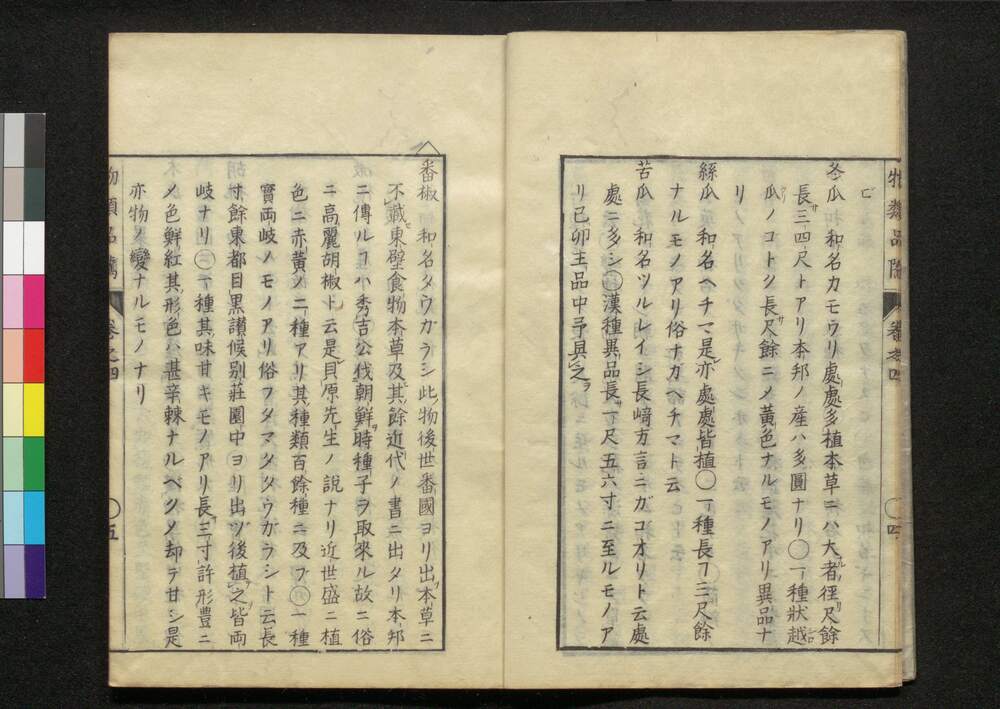 物類品隲 巻之四 〇四
ヒ
冬瓜 和名カモウリ處處多植本草ニハ大者徑尺餘
長三四尺トアリ本邦ノ産ハ多圓ナリ〇一種狀越
瓜ノコトク長尺餘ニメ黄色ナルモノアリ異品ナ
リ
絲瓜 和名ヘチマ是亦處處皆植〇一種長丁二三尺餘
ナルモノアリ俗ナガヘチマト云
苦瓜 和名ツルレイシ長﨑方言ニガコオリト云處
處ニ多シ〇漢種異品長丁一尺五六寸ニ至ルモノア
リ已卯主品中予具之
番椒 和名タウガラシ此物後世番國ヨリ出本草ニ
不載東壁食物本草及其餘近代ノ書ニ出タリ本邦
ニ傳ルヿハ秀吉公伐朝鮮時種子ヲ取來ル故ニ俗
ニ高麗胡椒ト云是貝原先生ノ說ナリ近世盛ニ植
色ニ赤黄ノ二種アリ其種類百餘種ニ及ブ〇一種
實両岐ノモノアリ俗フタマタタウガラシト云長
寸餘東都目黒讃候別莊園中ヨリ出ヅ後植之皆両
岐ナリ〇一種其味甘キモノアリ長三寸許形豊ニ
メ色鮮紅其形色ハ甚辛棘ナルベクメ却テ甘シ是
亦物ノ變ナルモノナリ
物類品隲 巻之四 〇五